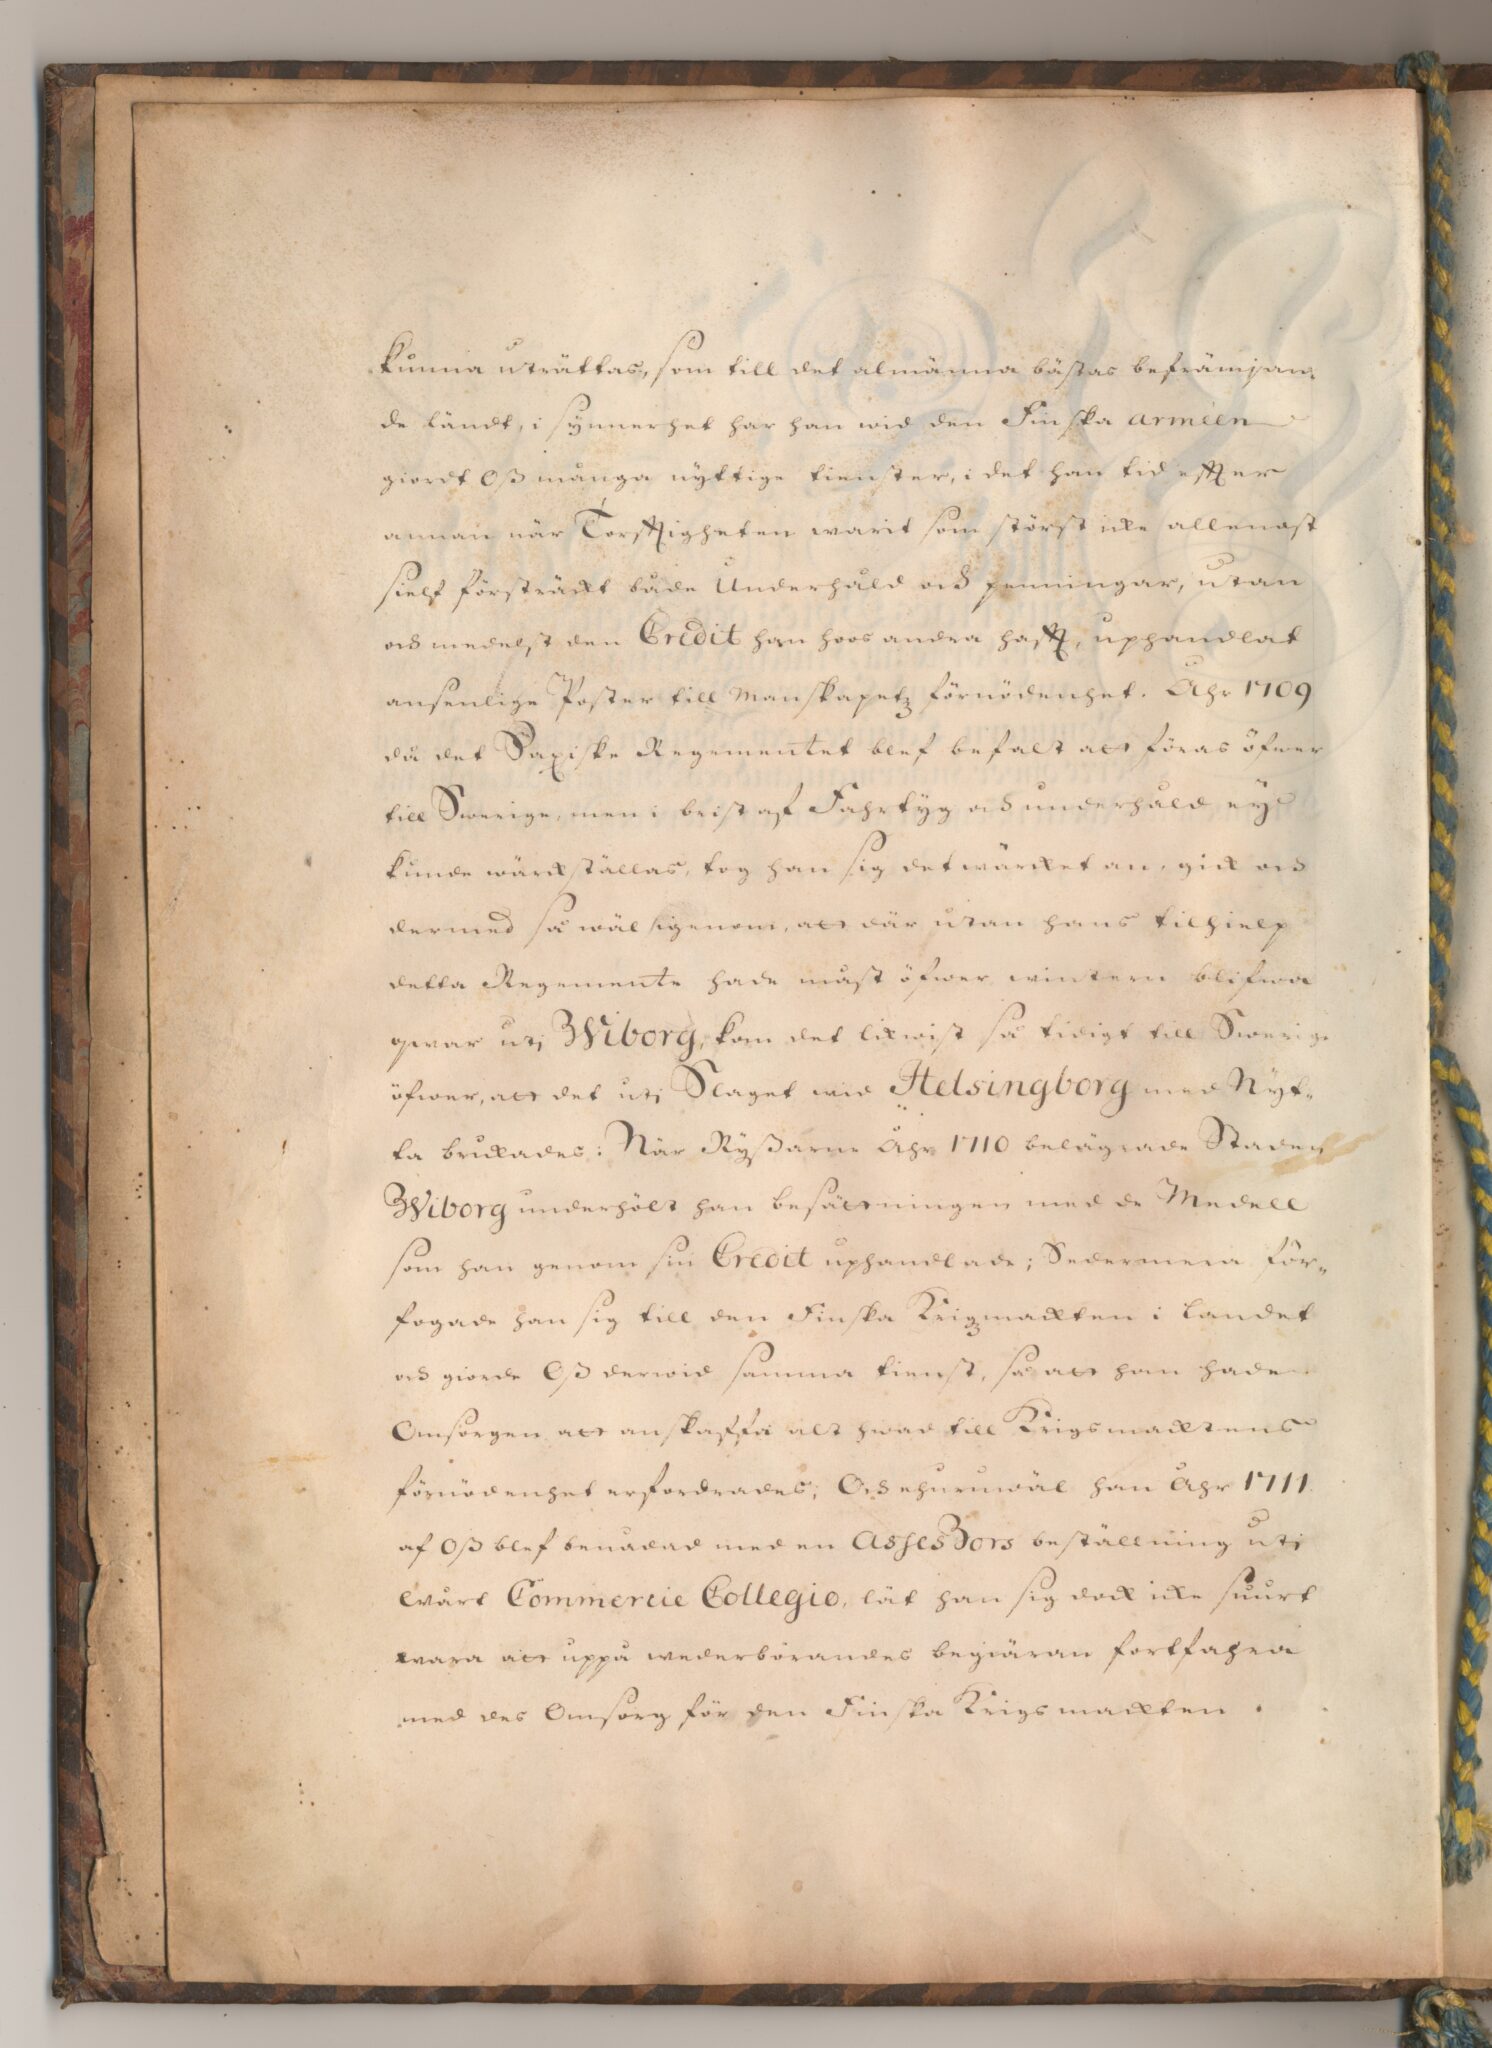 kunna uträttas, som till det almänna bästas befrämjan-
de ländt, i synnerhet har han wid den Finska armèen
giordt Oß många nyttige tienster, i det han tid effter
annan när Torfftigheten warit som störst icke allenast
sielf försträckt både Underhåld och penningar, utan
och medelst den Credit han hoos andra hafft, uphandlat
ansenlige Poster till Manskapetz förnödenhet. Åhr 1709
då det Saxiske Regementet blef befalt att föras öfwer
till Swerige, men i brist af Fahrtyg och underhåld eÿ
kunde wärckställas, tog han sig det wärcket an, gick och
dermed så wäl igenom, att där utan hans tilhielp
detta Regemente hade måst öfwer wintern blifwa
qwar uti Wiborg, kom det lickwist så tidigt till Swerige
öfwer, att det uti Slaget wid Helsingborg med Nyt-
ta bruckades: När Ryßarne åhr 1710 belägrade Staden
Wiborg underhölt han besättningen med de Medell
som han genom sin Credit uphandlade; Sedermera för-
fogade han sig till den Finska Krigzmackten i Landet
och giorde Oß derwid samma tienst, så att han hade
Omsorgen att anskaffa alt hwad till Krigsmacktens
förnödenhet erfordrades; Och ehuruwäl han åhr 1711
af Oß blef benådad med en Assessors beställning uti
wårt Commercie Collegio, lät han sig dock icke suurt
wara att uppå wederbörandes begiäran fortfahra
med des Omsorg för den Finska Krigsmackten.